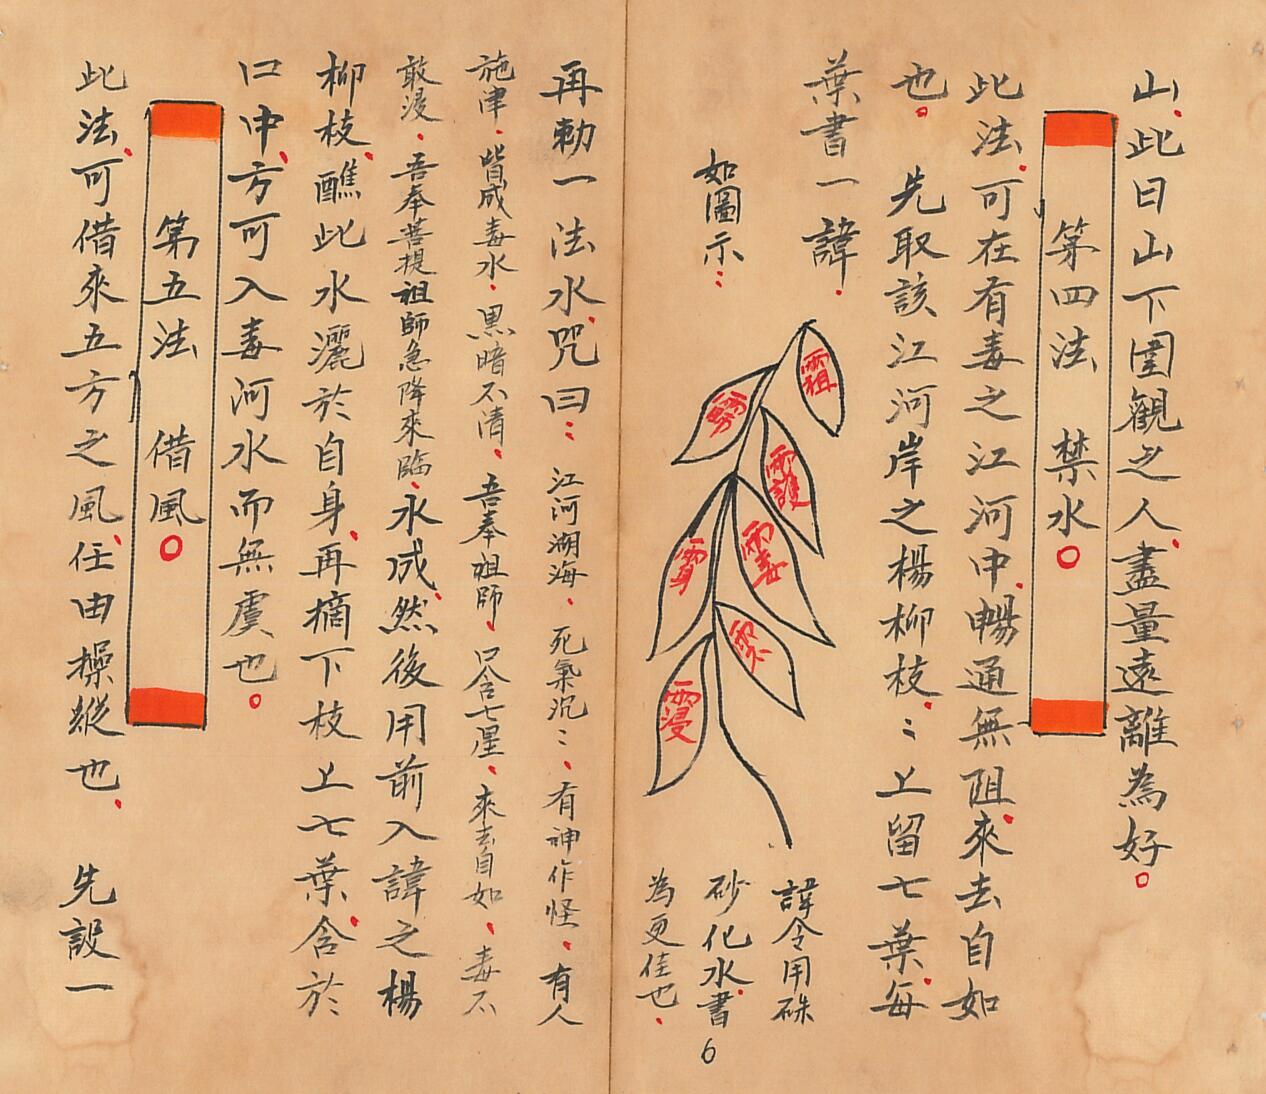 山此日山下圍觀之人盡量遠離為好
第四法　禁水
此法可在有毒之江河中暢通無阻來去自如
也　先取該江河岸之楊柳枝〻上留七葉每
葉書一諱
如圖示
諱令用硃
砂化水書
為更佳也
6
再勅一法水咒曰　江河湖海　死氣沉〻　有神作怪　有人
施津　皆成毒水　黑暗不清　吾奉祖師　口含七星　來去自如　毒不
敢浸　吾奉菩提祖師急降來臨　水成然後用前入諱之楊
柳枝醮此水灑於自身再摘下枝上七葉含於
口中方可入毒河水而無虞也
第五法　借風
此法可借來五方之風任由操縱也　先設一